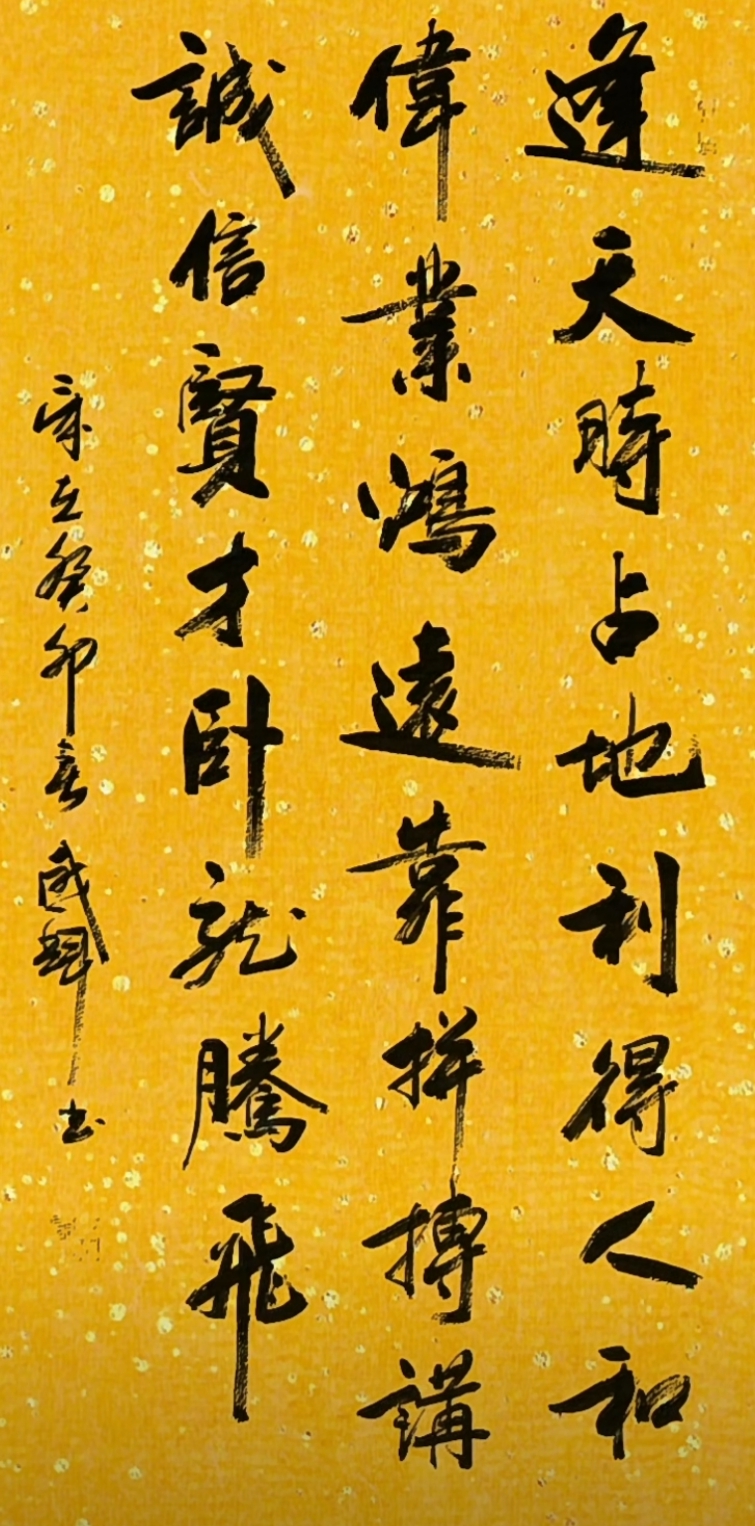 逢天時占地利得人和
偉業鴻遠靠拼搏講
誠信賢才卧龍騰飛
歲在癸卯春國輝書